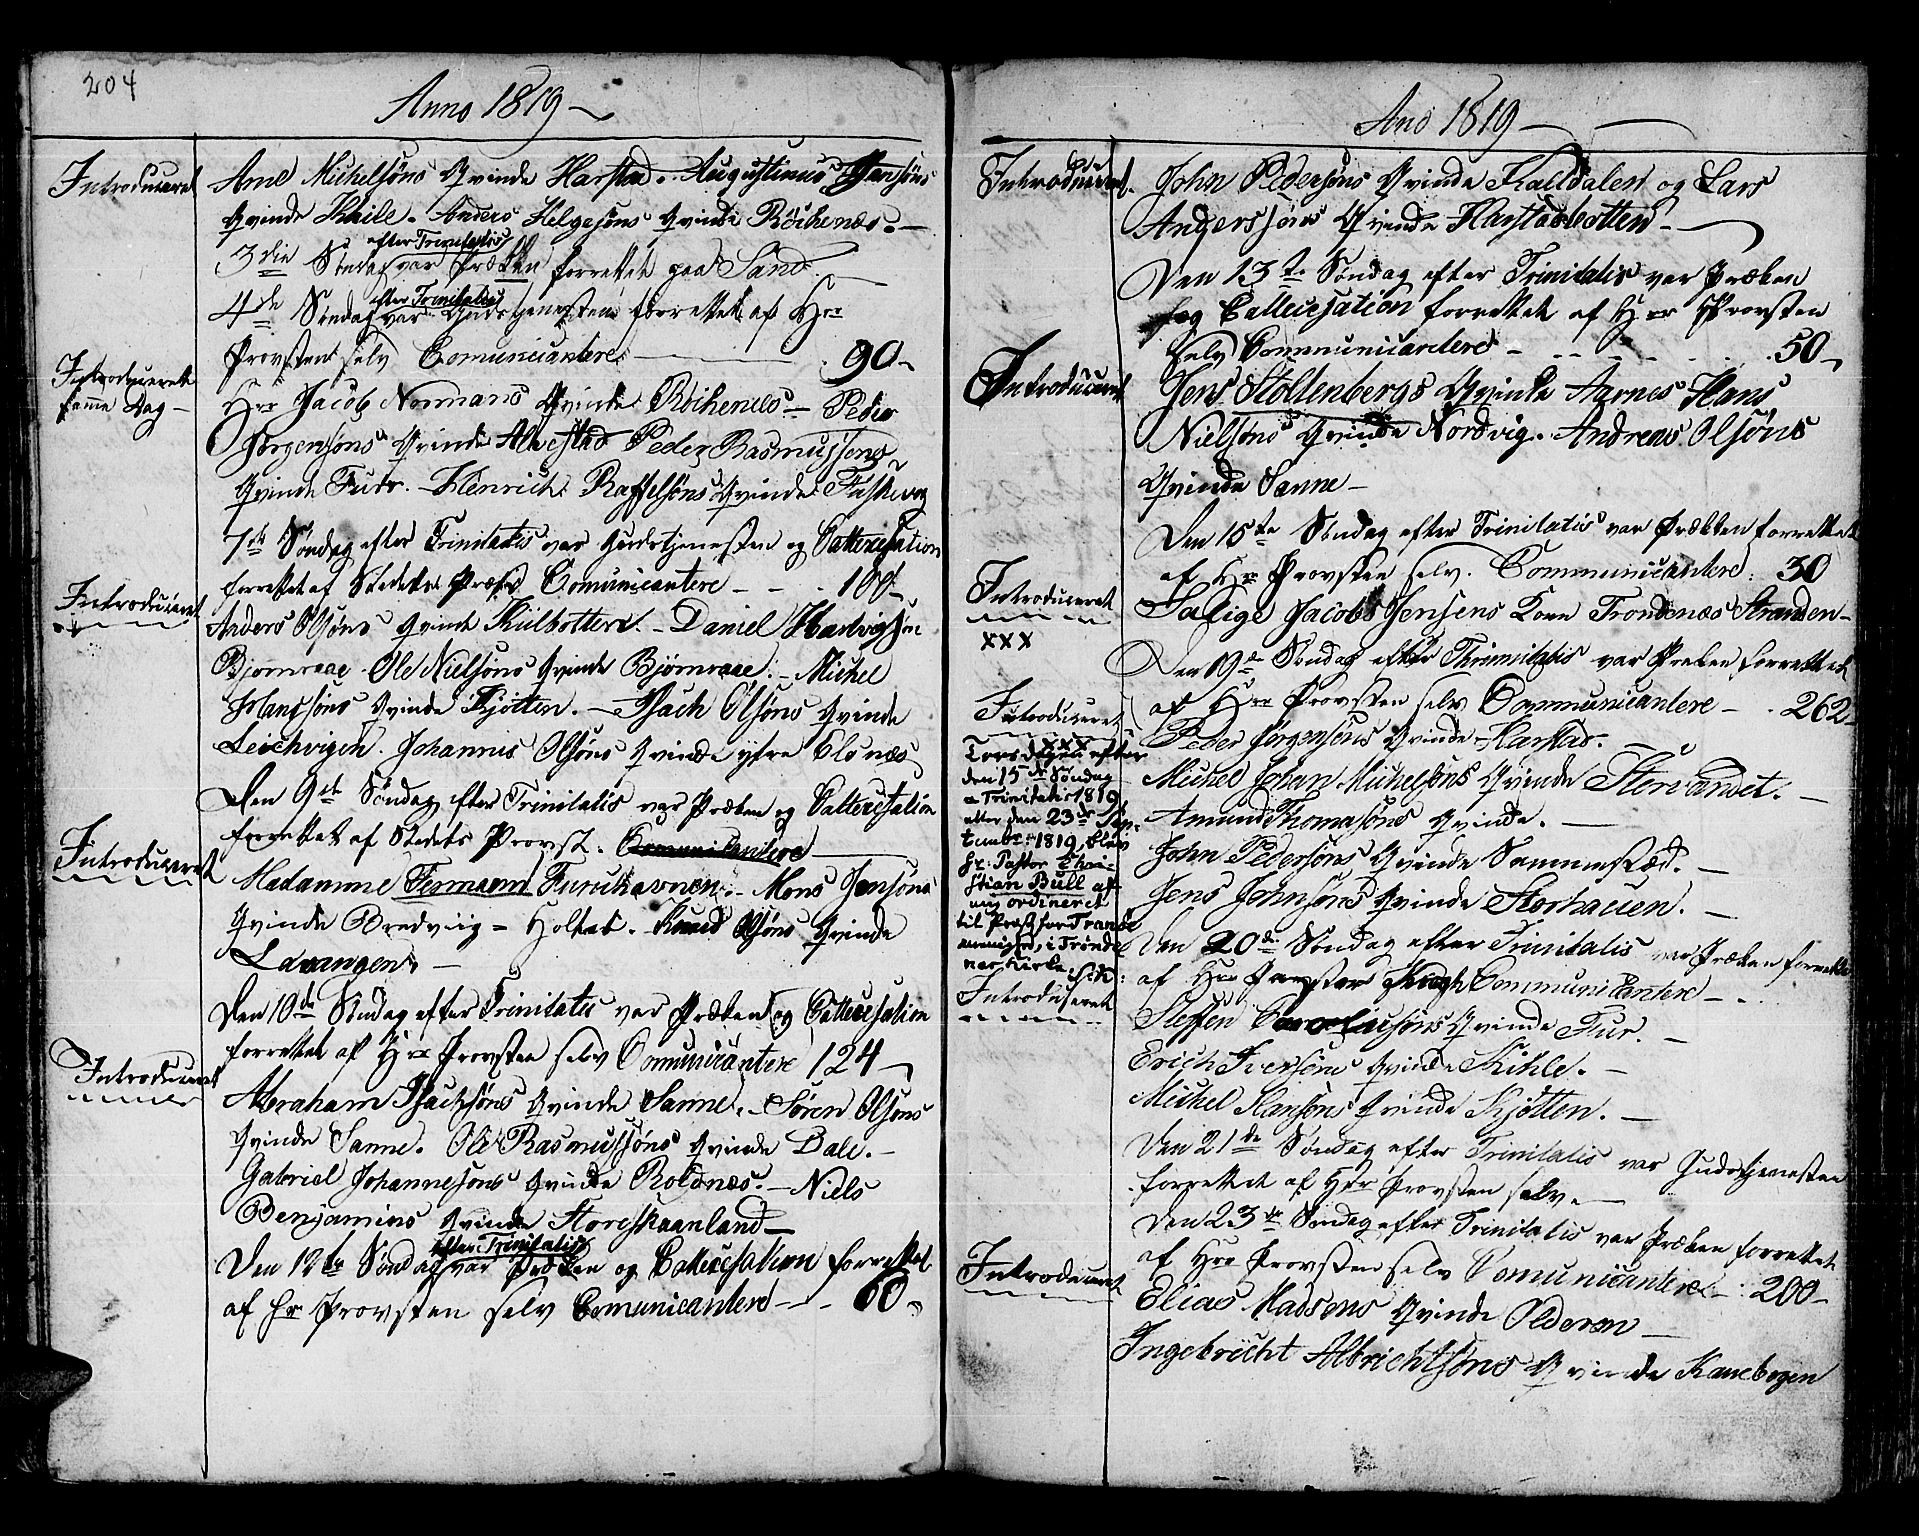 204
Anno 1819
Introduceret
Arne Michelsøns Qvinde Harstad. Augustinus Hansøns
Qvinde Kiile. Anders Helgesøns Qvinde Röikenes.
3die Søndag efter Trinitatis var Præken forrettet paa Sand.
4de Søndag efter Trinitatis var Gudstjenesten forrettet af Hrr
Provsten selv Comunicantere 90
Introducerett
samme Dag
Hrr Jacob Normans Qvinde Röikenes - Peder
Jørgensøns Qvinde Alvestad Peder Rasmussøns
Qvinde Fuur. Henrich Raffelsøns Qvinde
7de Søndag efter Trinitatis var Gudstjenesten og Cattecisation
forrettet af Stedets Præst Comunicantere - - 100
Introduceret
Anders Olsøns Qvinde Kiilbotten. Daniel Hartvigsen
Bjornraae. Ole Nielsøns Qvinde Bjørnraae. Michel
Hanssøns Qvinde Kjøtten. Isach Olsøns Qvinde
Leichvigen. Johannis Olsøns Qvinde ytre Elsnæs
Den 9de Søndag efter Trinitatis var Præken og Cattecisation
forrettet af Stedets Provst. Comunicantere
Introduceret
Madamme Fermann Furuhavnen. Mons Jensøns
Qvinde Bredviig - Holtet. Knud Olsøns Qvinde
Lavangen
Den 10de Søndag efter Trinitatis var Præken og Cattecisation
forrettet af Hrr Provsten selv Comunicantere 124
Introduceret
Abraham Isachsøns Qvinde Sanne. Søren Olsøns
Qvinde Sanne. Ole Rasmussøns Qvinde Dale.
Gabriel Johannesøns Qvinde Roldnæs. Niels
Benjamins Qvinde Storeskaanland
Den 12te Søndag efter Trinitatis var Præken og Cattecisation forrettet
af Hr Provsten selv Comunicantere - - 60
Ano 1819
Introduceret.
John Pedersøns Qvinde Kalldalen og Lars
Anderssøns Qvinde Harstadbotten
Den 13te Søndag efter Trinitatis var Præken
og Cattecisation forrettet af Hrr Provsten
selv Communicantere 50
Introduceret
Jens Stoltenbergs Qvinde Aarnes Hans
Nielsøns Qvinde Nordvig. Andreas Olsøns
Qvinde Sanne
Den 15te Søndag efter Trinitatis var Præken forrettet
af Hrr Provsten selv. Communicantere. 30
Introduceret
xxx
Salige Jacob Jensens Kone Trondenæs Stranden
Den 19de Søndag efter Thrinnitatis var Preken forrettet
af Hrr Provsten selv Communicantere - 262
Introduceret
xxx
Peder Jørgensøns Qvinde Harstad.
Michel Johan Michelsøns Qvinde Storvandet.
Amund Thomasøns Qvinde.
John Pedersøns Qvinde Sammested.
Jens Johnsøns Qvinde Storhauen.
Torsdagen efter
den 15de Søndag
a Trinitatis 1819
eller den 23de Sep-
tembr: 1819, blev
Hr: Pastor Chri-
stian Bull af
mig ordineret
til Præst for Tranöe
menighed, i Trønde
nes Kirke.
Den 20de Søndag efter Trinitatis var Præken forrettet
af Hrr Provsten Krogh Communicantere -
Introduceret
Steffen Corneliusøns Qvinde Fur.
Erich Iversøns Qvinde Kihle.
Michel Hansøns Qvinde Kjøtten.
Den 21de Søndag efter Trinitatis var Gudstjenesten
forrettet af Hrr Provsten selv.
Den 23de Søndag efter Trinitatis var Præken forrettet
af Hrr Provsten selv Comunicantere 200
Introduceret
Elias Madsens Qvinde Olderen
Ingebricht Albrichtsøns Qvinde Kanebogen